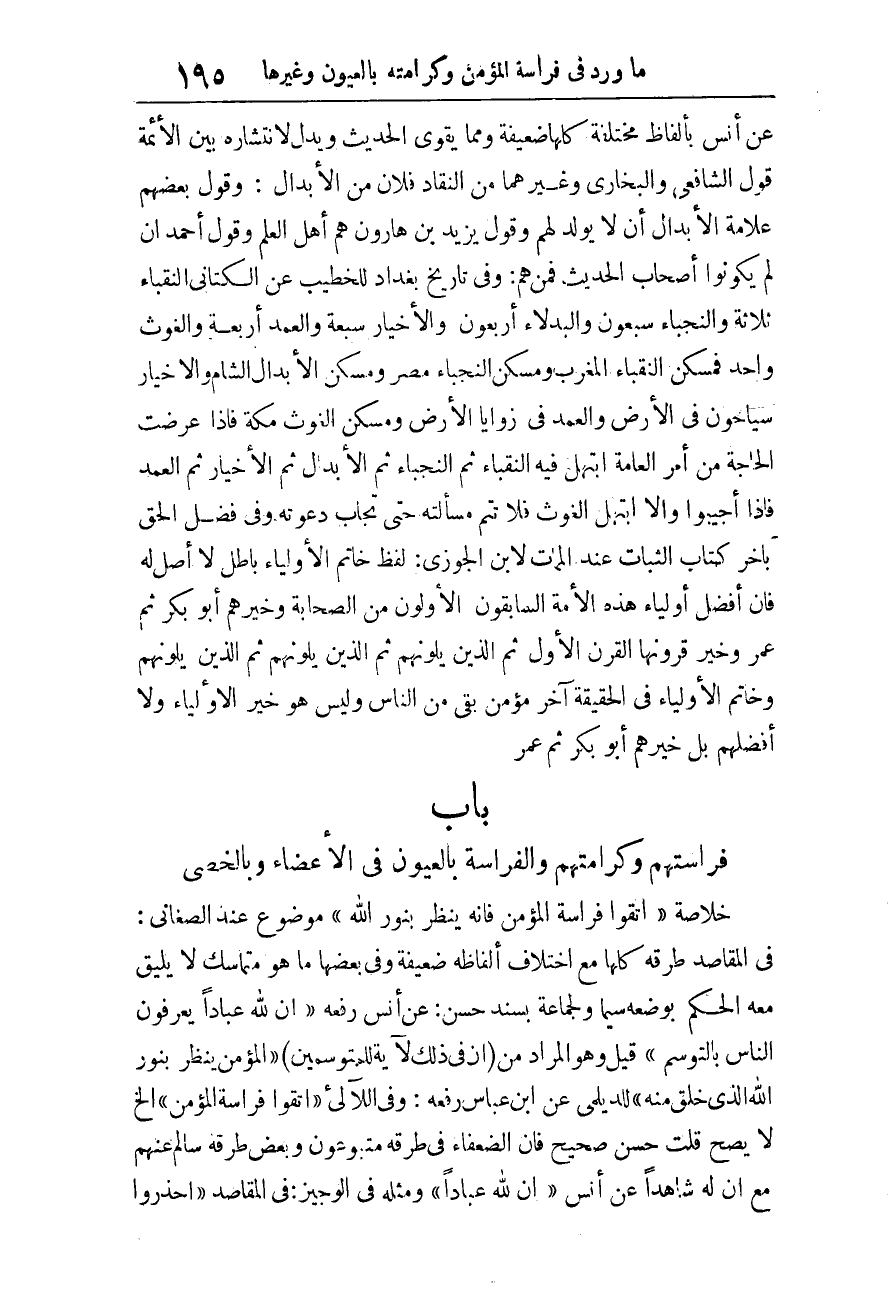 ما ورد فى فراسة المؤمن وكرامته بالعيون وغيرها ١٩٥
عن أنس بألفاظ مختلفة كلها ضعيفة ومما يقوى الحديث ويدل لانتشاره بين الأئمة
قول الشافعى والبخارى وغيرهما من النقاد فلان من الأبدال : وقول بعضهم
علامة الأبدال أن لا يولد لهم وقول يزيد بن هارون هم أهل العلم وقول أحمد ان
لم يكونوا أصحاب الحديث فمن هم : وفى تاريخ بغداد للخطيب عن الكتانى النقباء
ثلاثة والنجباء سبعون والبدلاء أربعون والأخيار سبعة والعمد أربعة والغوث
واحد فمسكن النقباء المغرب ومسكن النجباء مصر ومسكن الأبدال الشام والاخيار
سياحون فى الأرض والعمد فى زوايا الأرض ومسكن الغوث مكة فاذا عرضت
الحاجة من أمر العامة ابتهل فيه النقباء ثم النجباء ثم الأبدال ثم الأخيار ثم العمد
فاذا أجيبوا والا ابتهل الغوث فلا تتم مسألته حتى تجاب دعوته . وفى فضل الحق
بآخر كتاب الثبات عند الممات لابن الجوزى : لفظ خاتم الأولياء باطل لا أصل له
فان أفضل أولياء هذه الأمة السابقون الأولون من الصحابة وخيرهم أبو بكر ثم
عمر وخير قرونها القرن الأول ثم الذين يلونهم ثم الذين يلونهم ثم الذين يلونهم
وخاتم الأولياء فى الحقيقة آخر مؤمن بقى من الناس وليس هو خير الأولياء ولا
أفضلهم بل خيرهم أبو بكر ثم عمر
باب
فراستهم وكرامتهم والفراسة بالعيون فى الأعضاء وبالخصى
خلاصة « اتقوا فراسة المؤمن فانه ينظر بنور الله » موضوع عند الصغانى :
فى المقاصد طرقه كلها مع اختلاف ألفاظه ضعيفة وفى بعضها ما هو متماسك لا يليق
معه الحكم بوضعه سيما ولجماعة بسند حسن : عن أنس رفعه « ان لله عباداً يعرفون
الناس بالتوسم » قيل وهو المراد من (ان فى ذلك لآية للمتوسمين) « المؤمن ينظر بنور
الله الذى خلق منه » للديلمى عن ابن عباس رفعه : وفى اللآلىء « اتقوا فراسة المؤمن » الخ
لا يصح قلت حسن صحيح فان الضعفاء فى طرقه متبوعون وبعض طرقه سالم عنهم
مع ان له شاهداً عن أنس « ان لله عباداً » ومثله فى الوجيز : فى المقاصد « احذروا